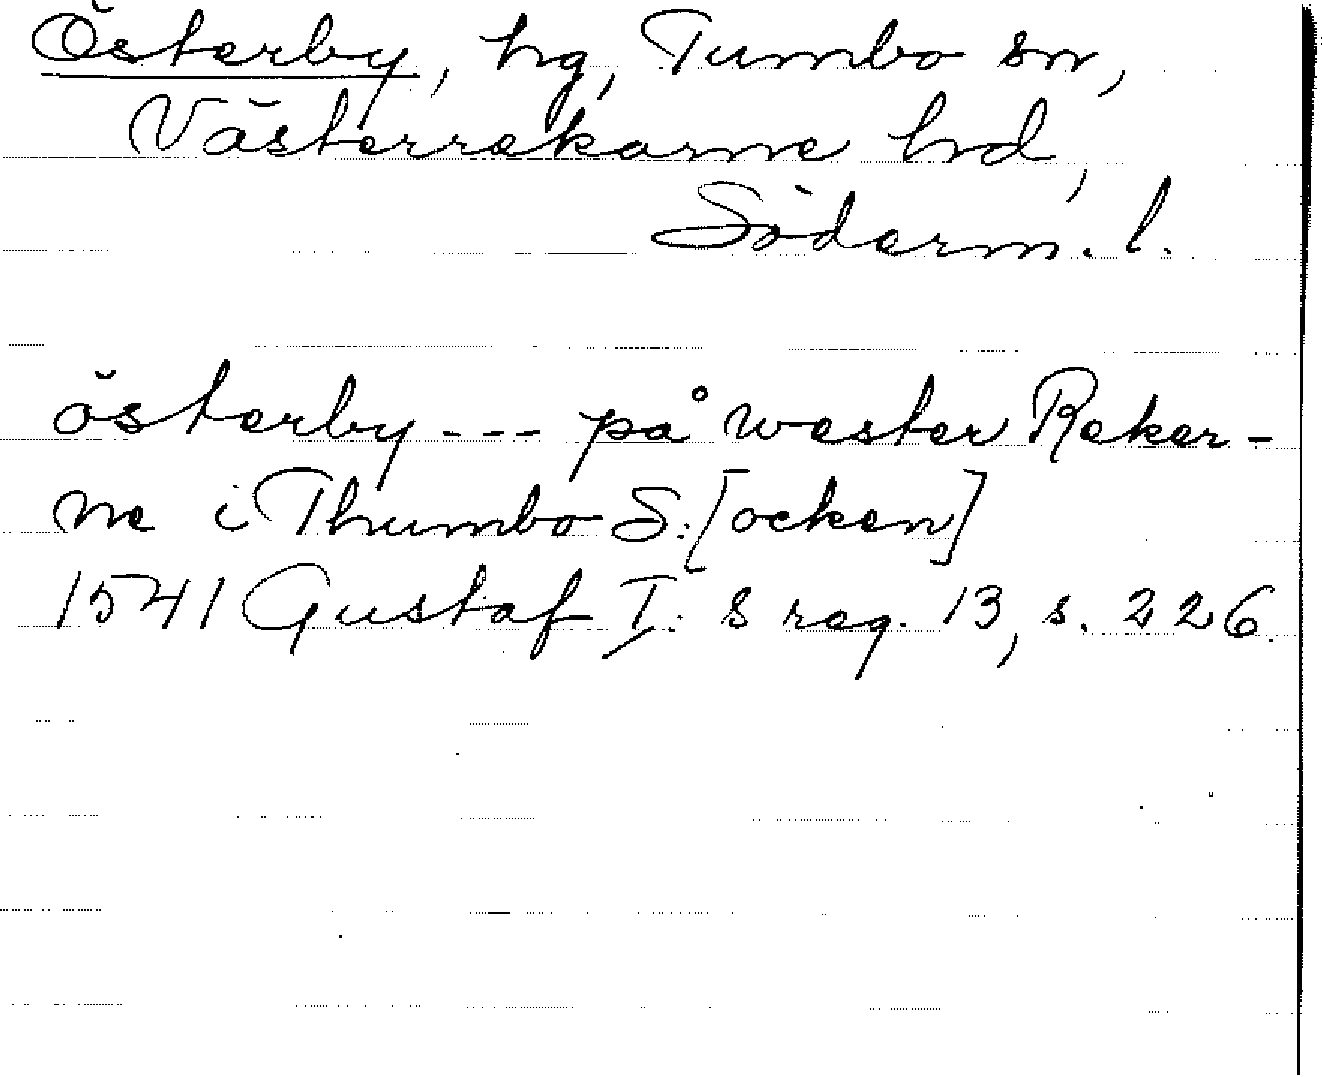 Österby, hg, Tumbo sn,
Västerrekarne hrd,
Söderm. l.
österby --- på wester Reker-
ne i Thumbo S:[ocken]
1541 Gustaf I:s reg. 13, s. 226.